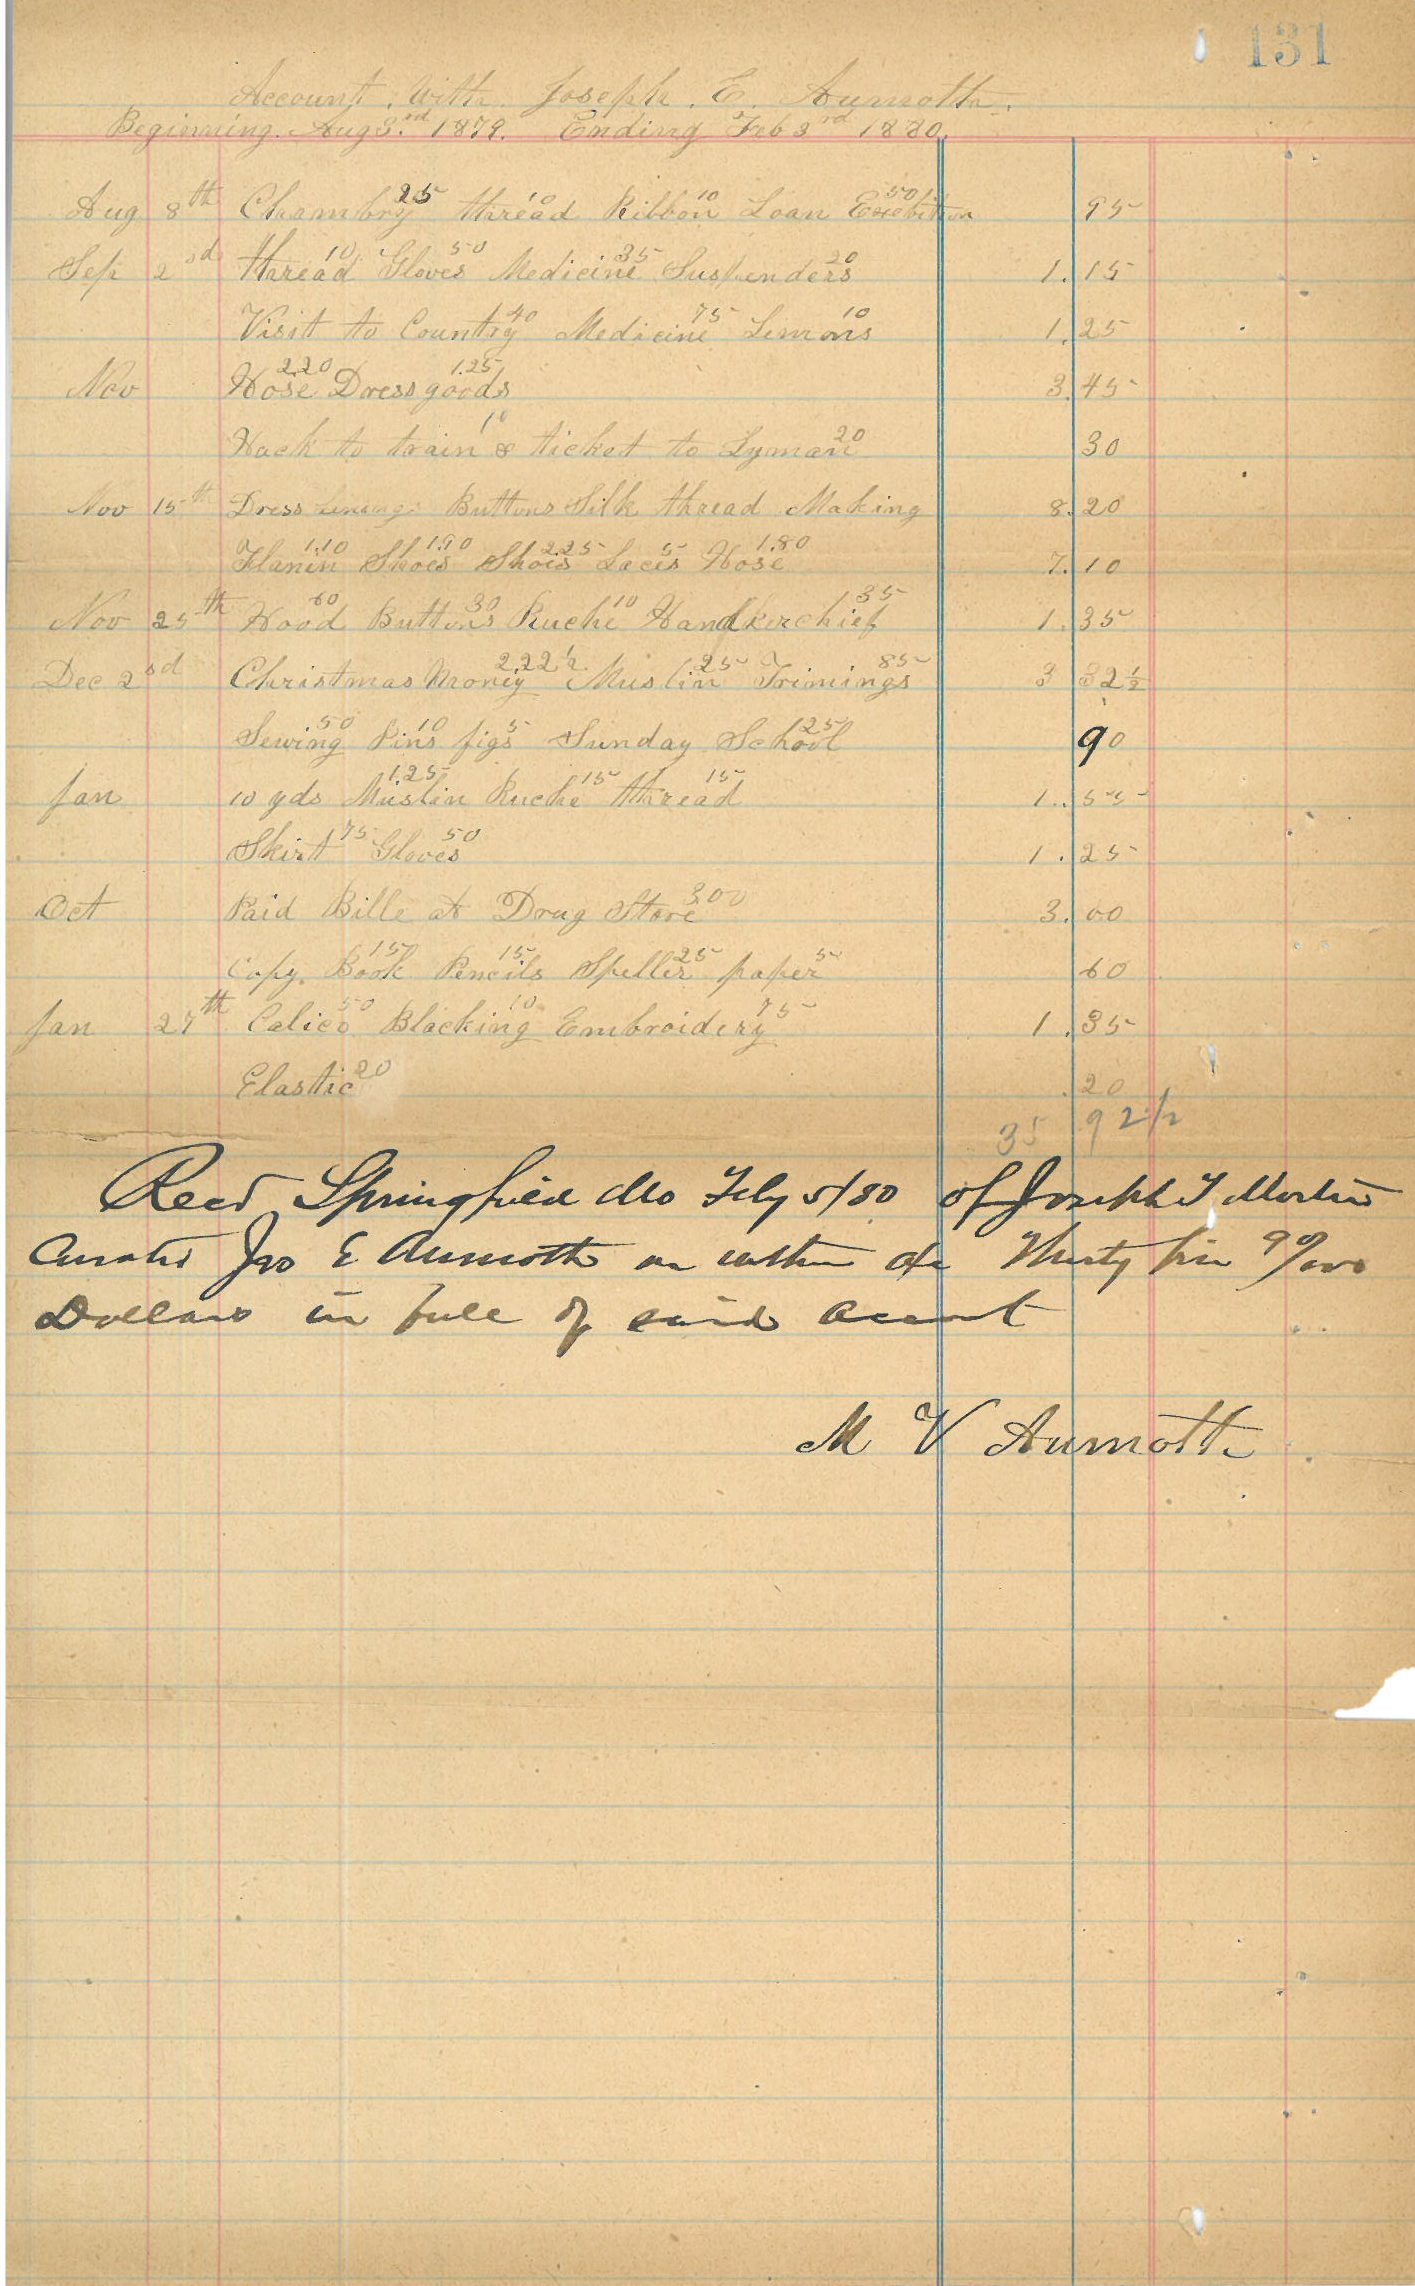 131
Account. With. Joseph. E. Aumoth.
Beginning. Aug 3.rd 1879. Ending Feb 3rd 1880.
Aug 8th Chambry 25 thread 10 Ribbon 10 Loan Exebition 50 95
Sep 2nd thread 10 Gloves 50 Medicine 35 Suspenders 20 1.15
Visit to Country 40 Medicine 75 Lemons 10 1.25
Nov Hose 2.20 Dress goods 1.25 3.45
Hack to train 10 & ticket to Lyman 20 30
Nov 15th Dress Lining Buttons Silk thread Making 8.20
Flanin 1.10 Shoes 1.90 Shois 2.25 Laces 5 Hose 1.80 7.10
Nov 25th Hood 60 Buttons 30 Ruche 10 Handkerchief 35 1.35
Dec 2nd Christmas Money 2.22 1/2 Muslin 25 Trimings 85 3 32 1/2
Sewing 50 Pins 10 figs 5 Sunday School 25 90
Jan 10 yds Muslin 1.25 Ruche 15 thread 15 1.55
Skirt 75 Gloves 50 1.25
Oct Paid Bille at Drug Store 3.00 3.00
Copy. Book 15 Pencils 15 Speller 25 paper 5 60
Jan 27th Calico 50 Blacking 10 Embroidery 75 1.35
Elastic 20 .20
35 92 1/2
Recd Springfield Mo Feby 5/80 of Joseph T
Jos E Aumoth on within a/c Thirty five 90/100
Dollars in full of said account
M V Aumoth